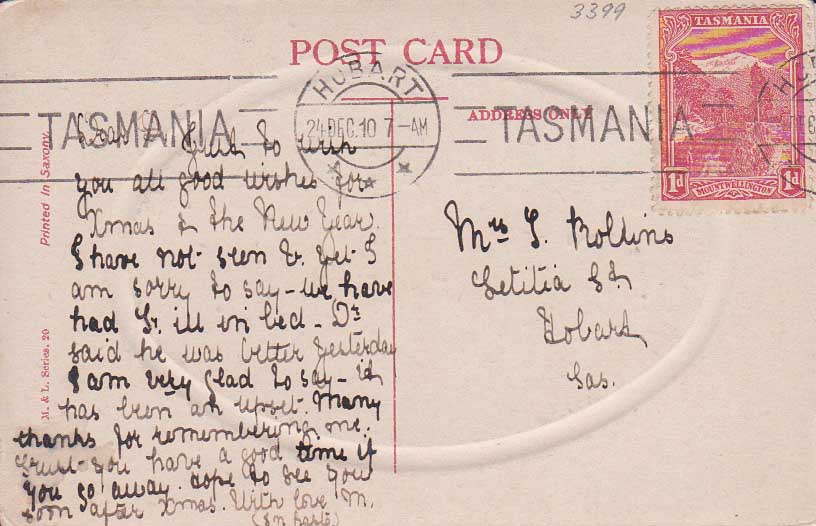 3399
POST CARD
TASMANIA
1d
MOUNT WELLINGTON
1d
HOBART
24 DEC. 10 7 - AM
TASMANIA
TASMANIA
ADDRESS ONLY
Printed in Saxony
M. & L. Series. 20
Dear
Just to wish
you all good wishes for
Xmas & the New Year.
I have not seen E. yet I
am sorry to say - we have
had Sr. ill in bed - Dr.
said he was better yesterday
I am very glad to say - it
has been an upset. Many
thanks for remembering me.
Trust you have a good time if
you go away. Hope to see you
soon after Xmas. With love M.
(In haste)
Mrs T. Rollins
Letitia St
Hobart
Tas.